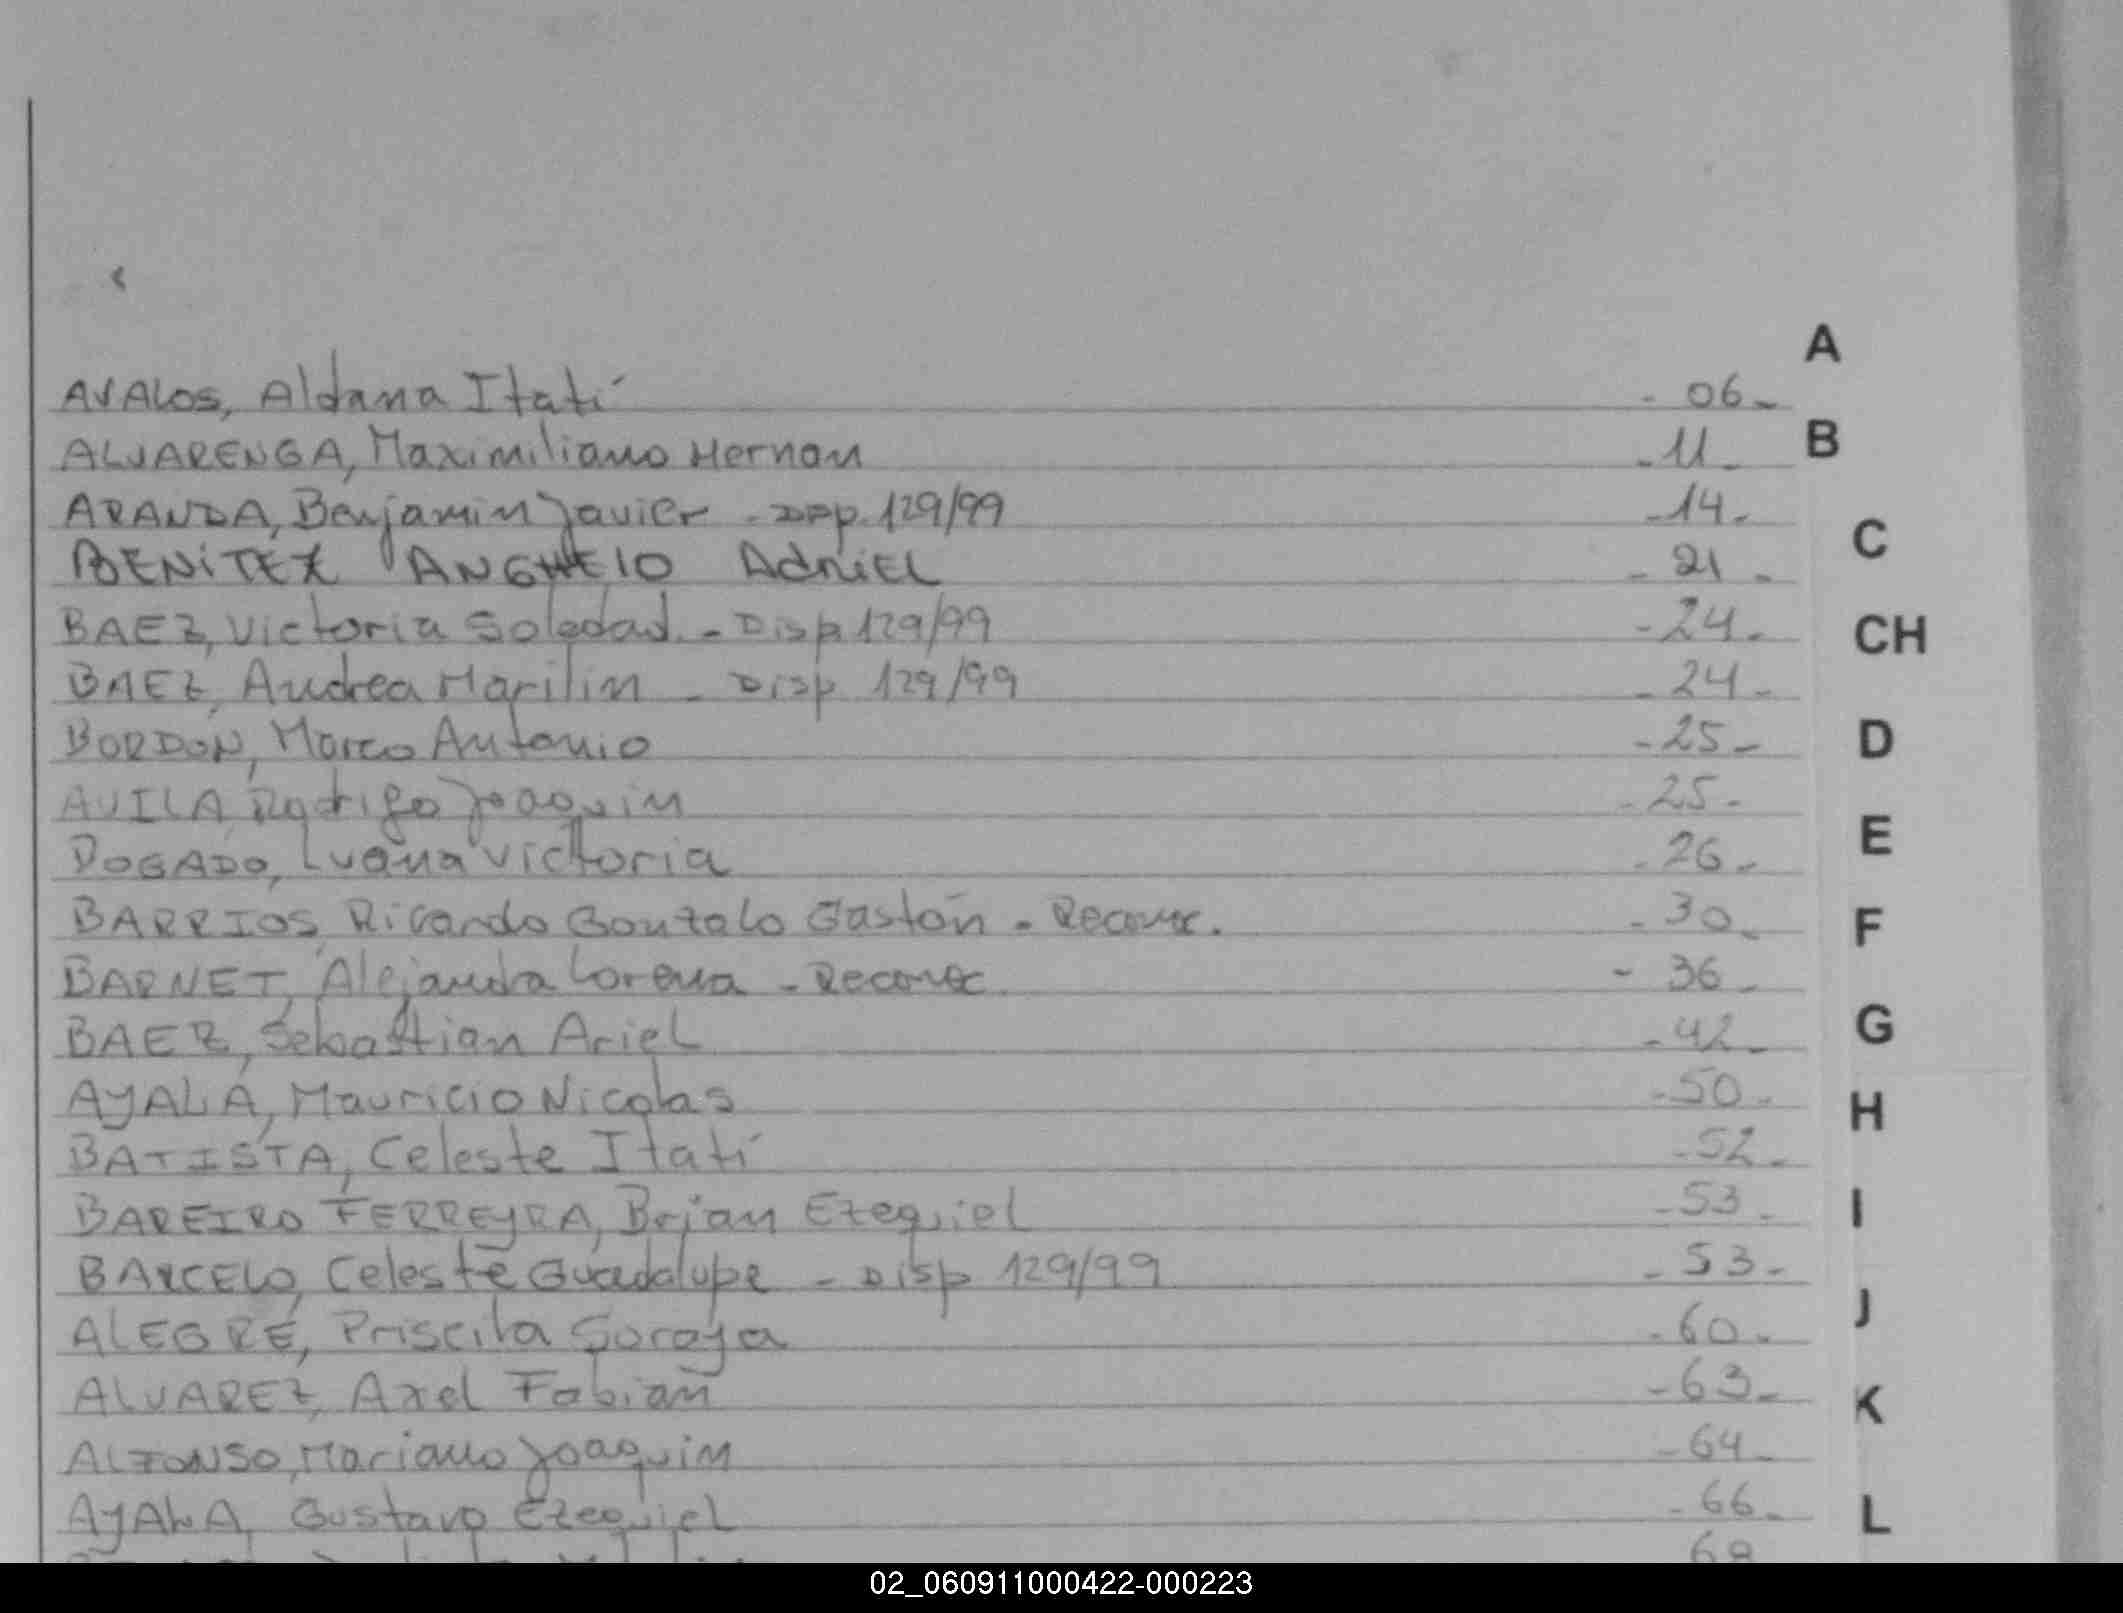 A
AVALOS, Aldana Itatí - 06 -
B
ALVARENGA, Maximiliano Hernan - 11 -
ARANDA, Benjamin Javier - Disp. 129/99 - 14 -
C
BENITEZ ANGHELO Adriel - 21 -
BAEZ, Victoria Soledad - Disp 129/99 - 24 -
CH
BAEZ, Andrea Marilin - Disp 129/99 - 24 -
BORDON, Marco Antonio - 25 -
D
AVILA, Rodrigo Joaquin - 25 -
E
DOGADO, Luana Victoria - 26 -
BARRIOS, Ricardo Gonzalo Gastón - Reconoc. - 30 -
F
BARNET, Alejandra Lorena - Reconoc - 36 -
BAEZ, Sebastian Ariel - 42 -
G
AYALA, Mauricio Nicolas - 50 -
H
BATISTA, Celeste Itatí - 52 -
BAREIRO FERREYRA, Brian Ezequiel - 53 -
I
BARCELO, Celeste Guadalupe - Disp 129/99 - 53 -
J
ALEGRE, Priscila Soraya - 60 -
ALVAREZ, Axel Fabian - 63 -
K
ALFONSO, Mariano Joaquin - 64 -
AYALA, Gustavo Ezequiel - 66 -
L
68
02_060911000422-000223